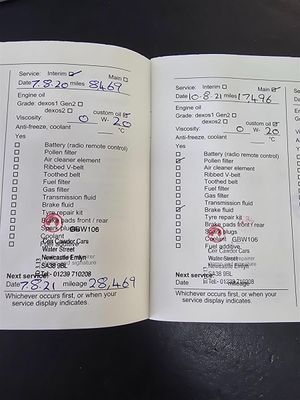 Service: Interim Main
Date 7.8.20 miles 8469
Engine oil
Grade: dexos1 Gen2
dexos2 custom oil
Viscosity: 0 W- 20
Anti-freeze, coolant °C
Yes
Battery (radio remote control)
Pollen filter
Air cleaner element
Ribbed V-belt
Toothed belt
Fuel filter
Gas filter
Transmission fluid
Brake fluid
Tyre repair kit
Brake pads front / rear
Spark plugs GBW106
Coolant
Ceri Cawdor Cars
Water Street
Newcastle Emlyn
SA38 9BL
Next service Tel:- 01239 710208
Date 7.8.21 mileage 28,469
Whichever occurs first, or when your
service display indicates.
Service: Interim Main
Date 10.8.21 miles 17496
Engine oil
Grade: dexos1 Gen2
dexos2 custom oil
Viscosity: 0 W- 20
Anti-freeze, coolant °C
Yes
Battery (radio remote control)
Pollen filter
Air cleaner element
Ribbed V-belt
Toothed belt
Fuel filter
Gas filter
Transmission fluid
Brake fluid
Tyre repair kit
Brake pads front / rear
Spark plugs
Coolant GBW106
Fuel additive
Ceri Cawdor Cars
Water Street
Newcastle Emlyn
SA38 9BL
Next service Tel:- 01239 710208
Date mileage
Whichever occurs first, or when your
service display indicates.